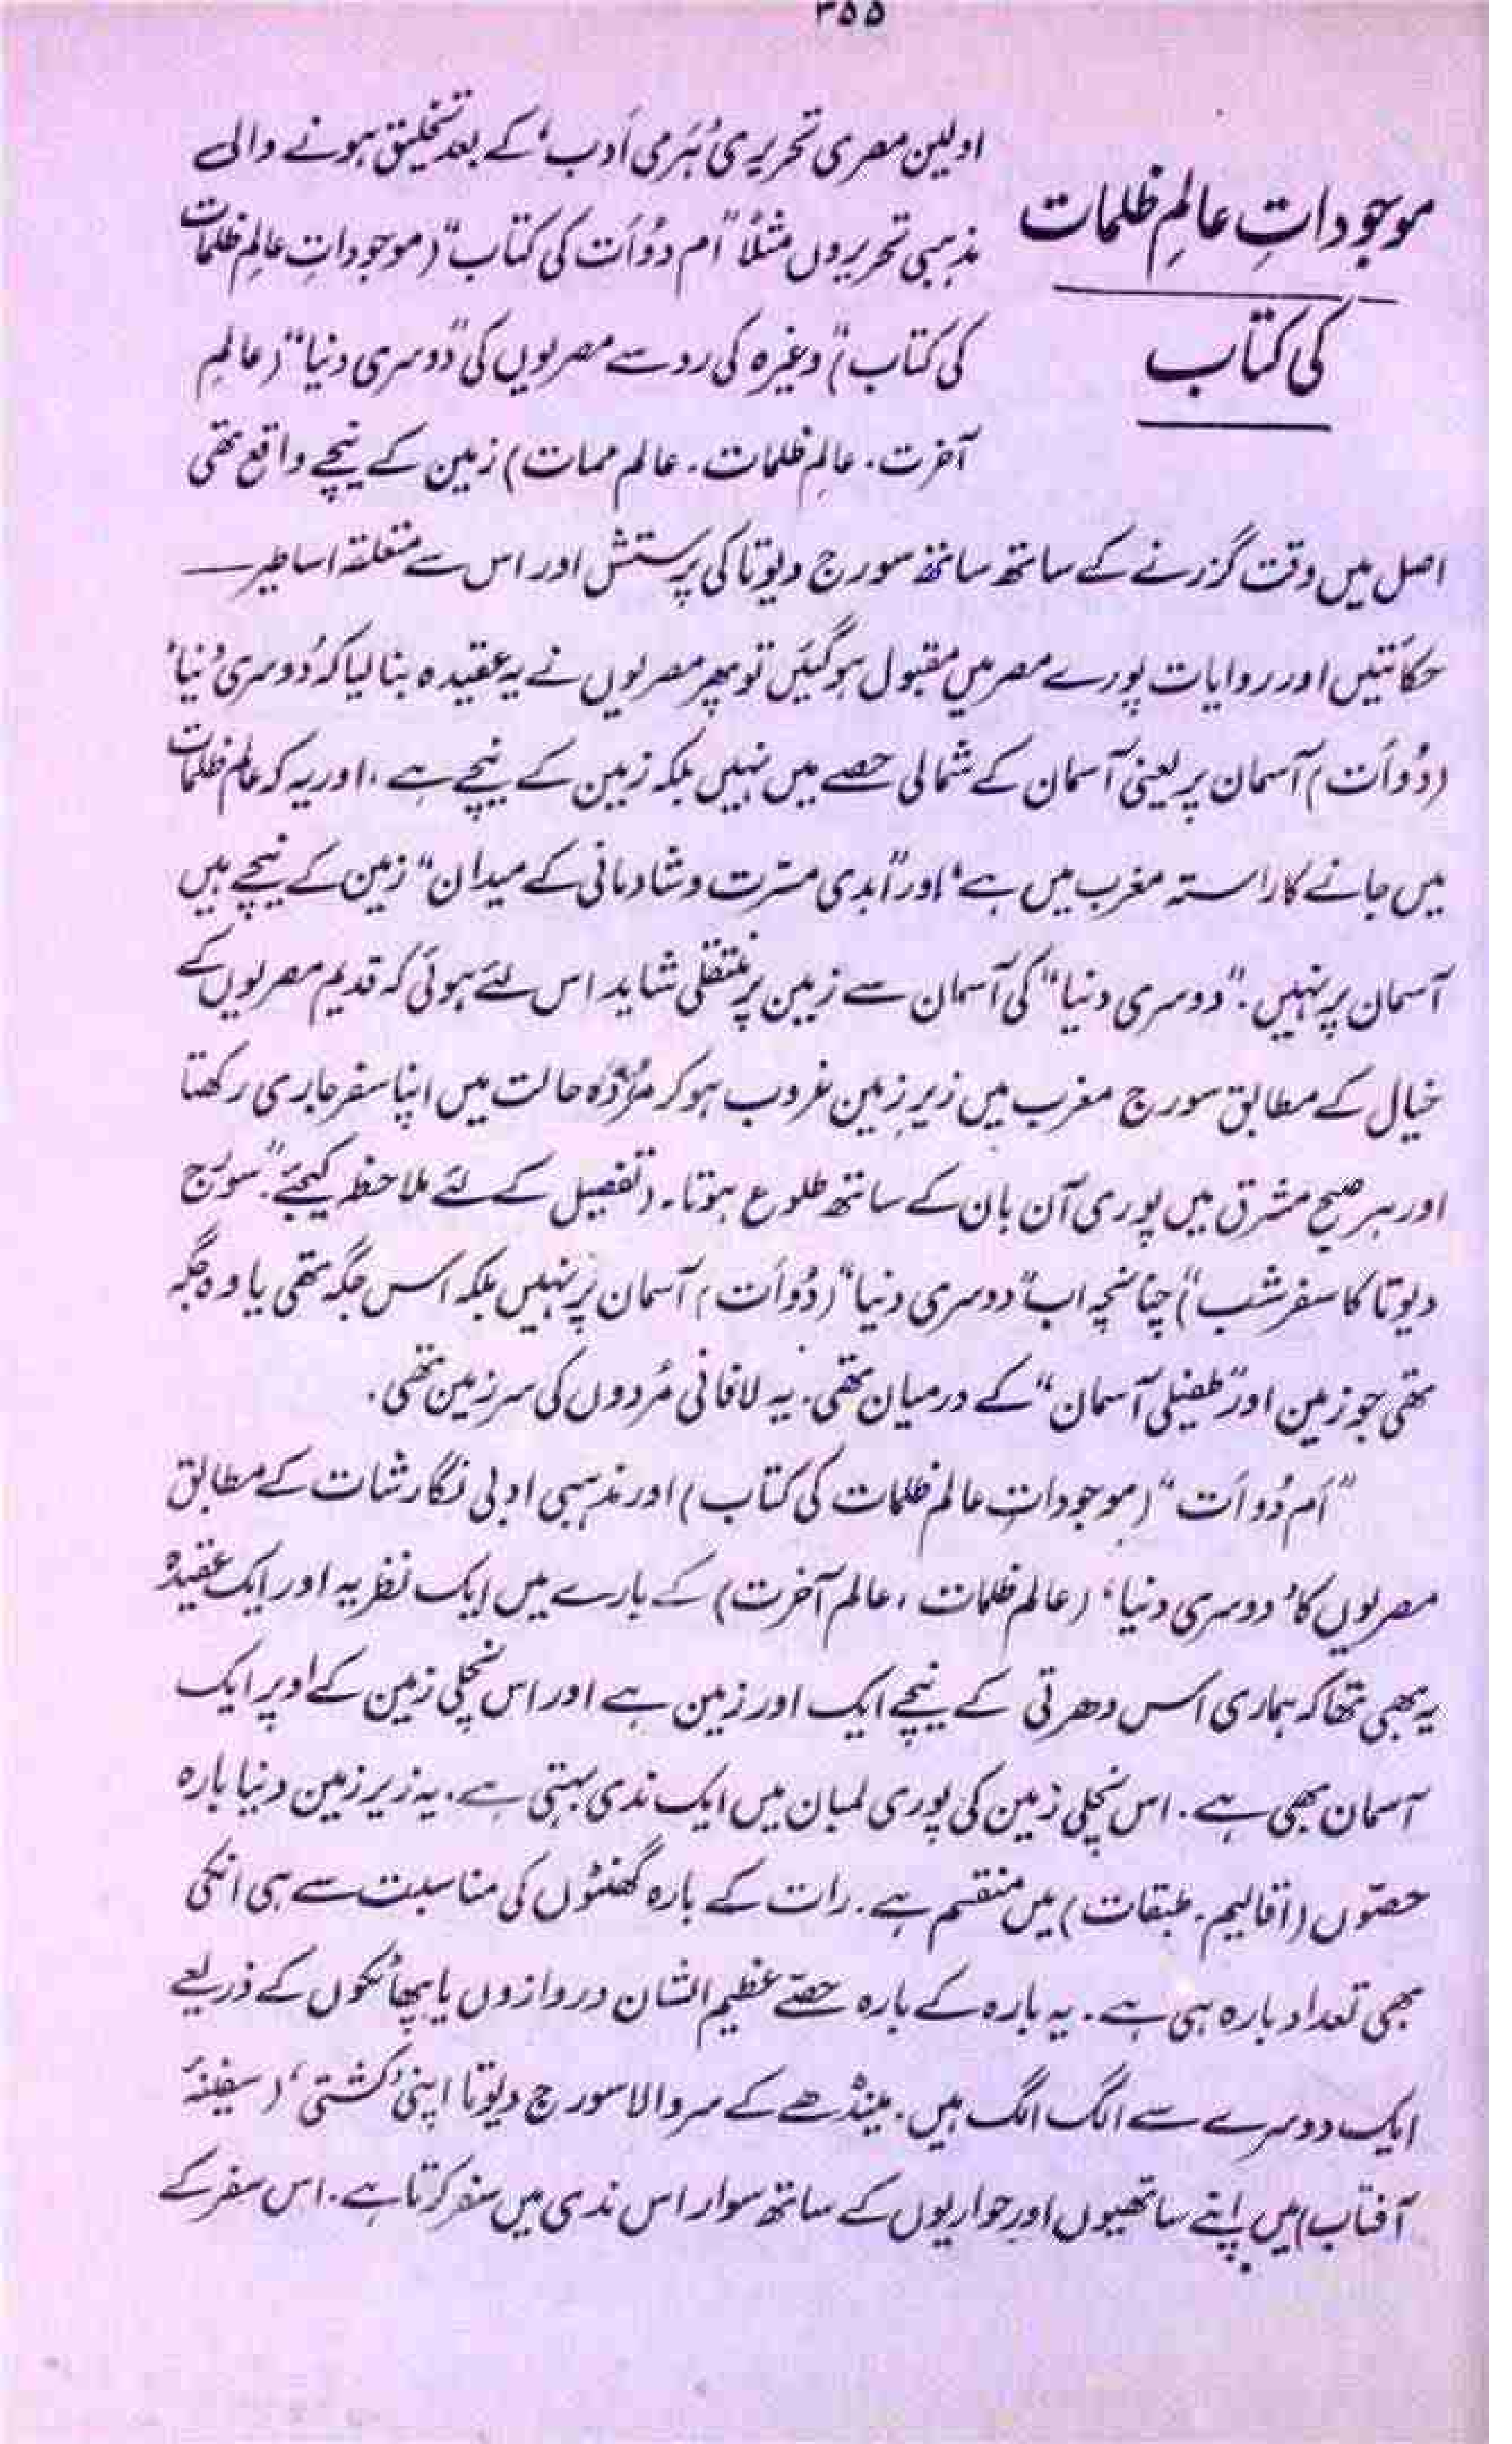 ۳۵۵
موجوداتِ عالمِ ظلمات
کی کتاب
اولین مصری تحریری ’ہَرَمی اَدب‘ کے بعد تخلیق ہونے والی
مذہبی تحریروں مثلاً ”اَم دُواَت کی کتاب“ (موجوداتِ عالمِ ظلمات
کی کتاب) وغیرہ کی رو سے مصریوں کی ”دوسری دنیا“ (عالمِ
آخرت ۔ عالمِ ظلمات ۔ عالم ممات) زمین کے نیچے واقع تھی
اصل میں وقت گزرنے کے ساتھ ساتھ سورج دیوتا کی پرستش اور اس سے متعلقہ اساطیر ــــ
حکائتیں اور روایات پورے مصر میں مقبول ہوگئیں تو پھر مصریوں نے یہ عقیدہ بنا لیا کہ ’دوسری دُنیا‘
(دُواَت) آسمان پر یعنی آسمان کے شمالی حصے میں نہیں بلکہ زمین کے نیچے ہے ، اور یہ کہ عالم ظلمات
میں جانے کا راستہ مغرب میں ہے‘ اور ”ابدی مسرّت و شادمانی کے میدان“ زمین کے نیچے ہیں
آسمان پر نہیں ۔ ”دوسری دنیا“ کی آسمان سے زمین پر منتقلی شاید اس لئے ہوئی کہ قدیم مصریوں کے
خیال کے مطابق سورج مغرب میں زیرِ زمین غروب ہوکر مُردہ حالت میں اپنا سفر جاری رکھتا
اور ہر صبح مشرق میں پوری آن بان کے ساتھ طلوع ہوتا ۔ (تفصیل کے لئے ملاحظہ کیجئے ”سورج
دیوتا کا سفر شب“) چنانچہ اب ”دوسری دنیا“ (دُواَت) آسمان پر نہیں بلکہ اس جگہ تھی یا وہ جگہ
تھی جو زمین اور ”طفیلی آسمان“ کے درمیان تھی ۔ یہ لافانی مُردوں کی سرزمین تھی ۔
”اَم دُواَت“ (موجوداتِ عالم ظلمات کی کتاب) اور مذہبی ادبی نگارشات کے مطابق
مصریوں کا ’دوسری دنیا‘ (عالم ظلمات ، عالم آخرت) کے بارے میں ایک نظریہ اور ایک عقیدہ
یہ بھی تھا کہ ہماری اس دھرتی کے نیچے ایک اور زمین ہے اور اس نچلی زمین کے اوپر ایک
آسمان بھی ہے ۔ اس نچلی زمین کی پوری لمبان میں ایک ندی بہتی ہے ، یہ زیر زمین دنیا بارہ
حصّوں (اقالیم ۔ طبقات) میں منقسم ہے ۔ رات کے بارہ گھنٹوں کی مناسبت سے ہی انکی
بھی تعداد بارہ ہی ہے ۔ یہ بارہ کے بارہ حصّے عظیم الشان دروازوں یا پھاٹکوں کے ذریعے
ایک دوسرے سے الگ الگ ہیں ۔ مینڈھے کے سر والا سورج دیوتا اپنی ’کشتی‘ (سفینۂ
آفتاب) میں اپنے ساتھیوں اور حواریوں کے ساتھ سوار اس ندی میں سفر کرتا ہے ۔ اس سفر کے